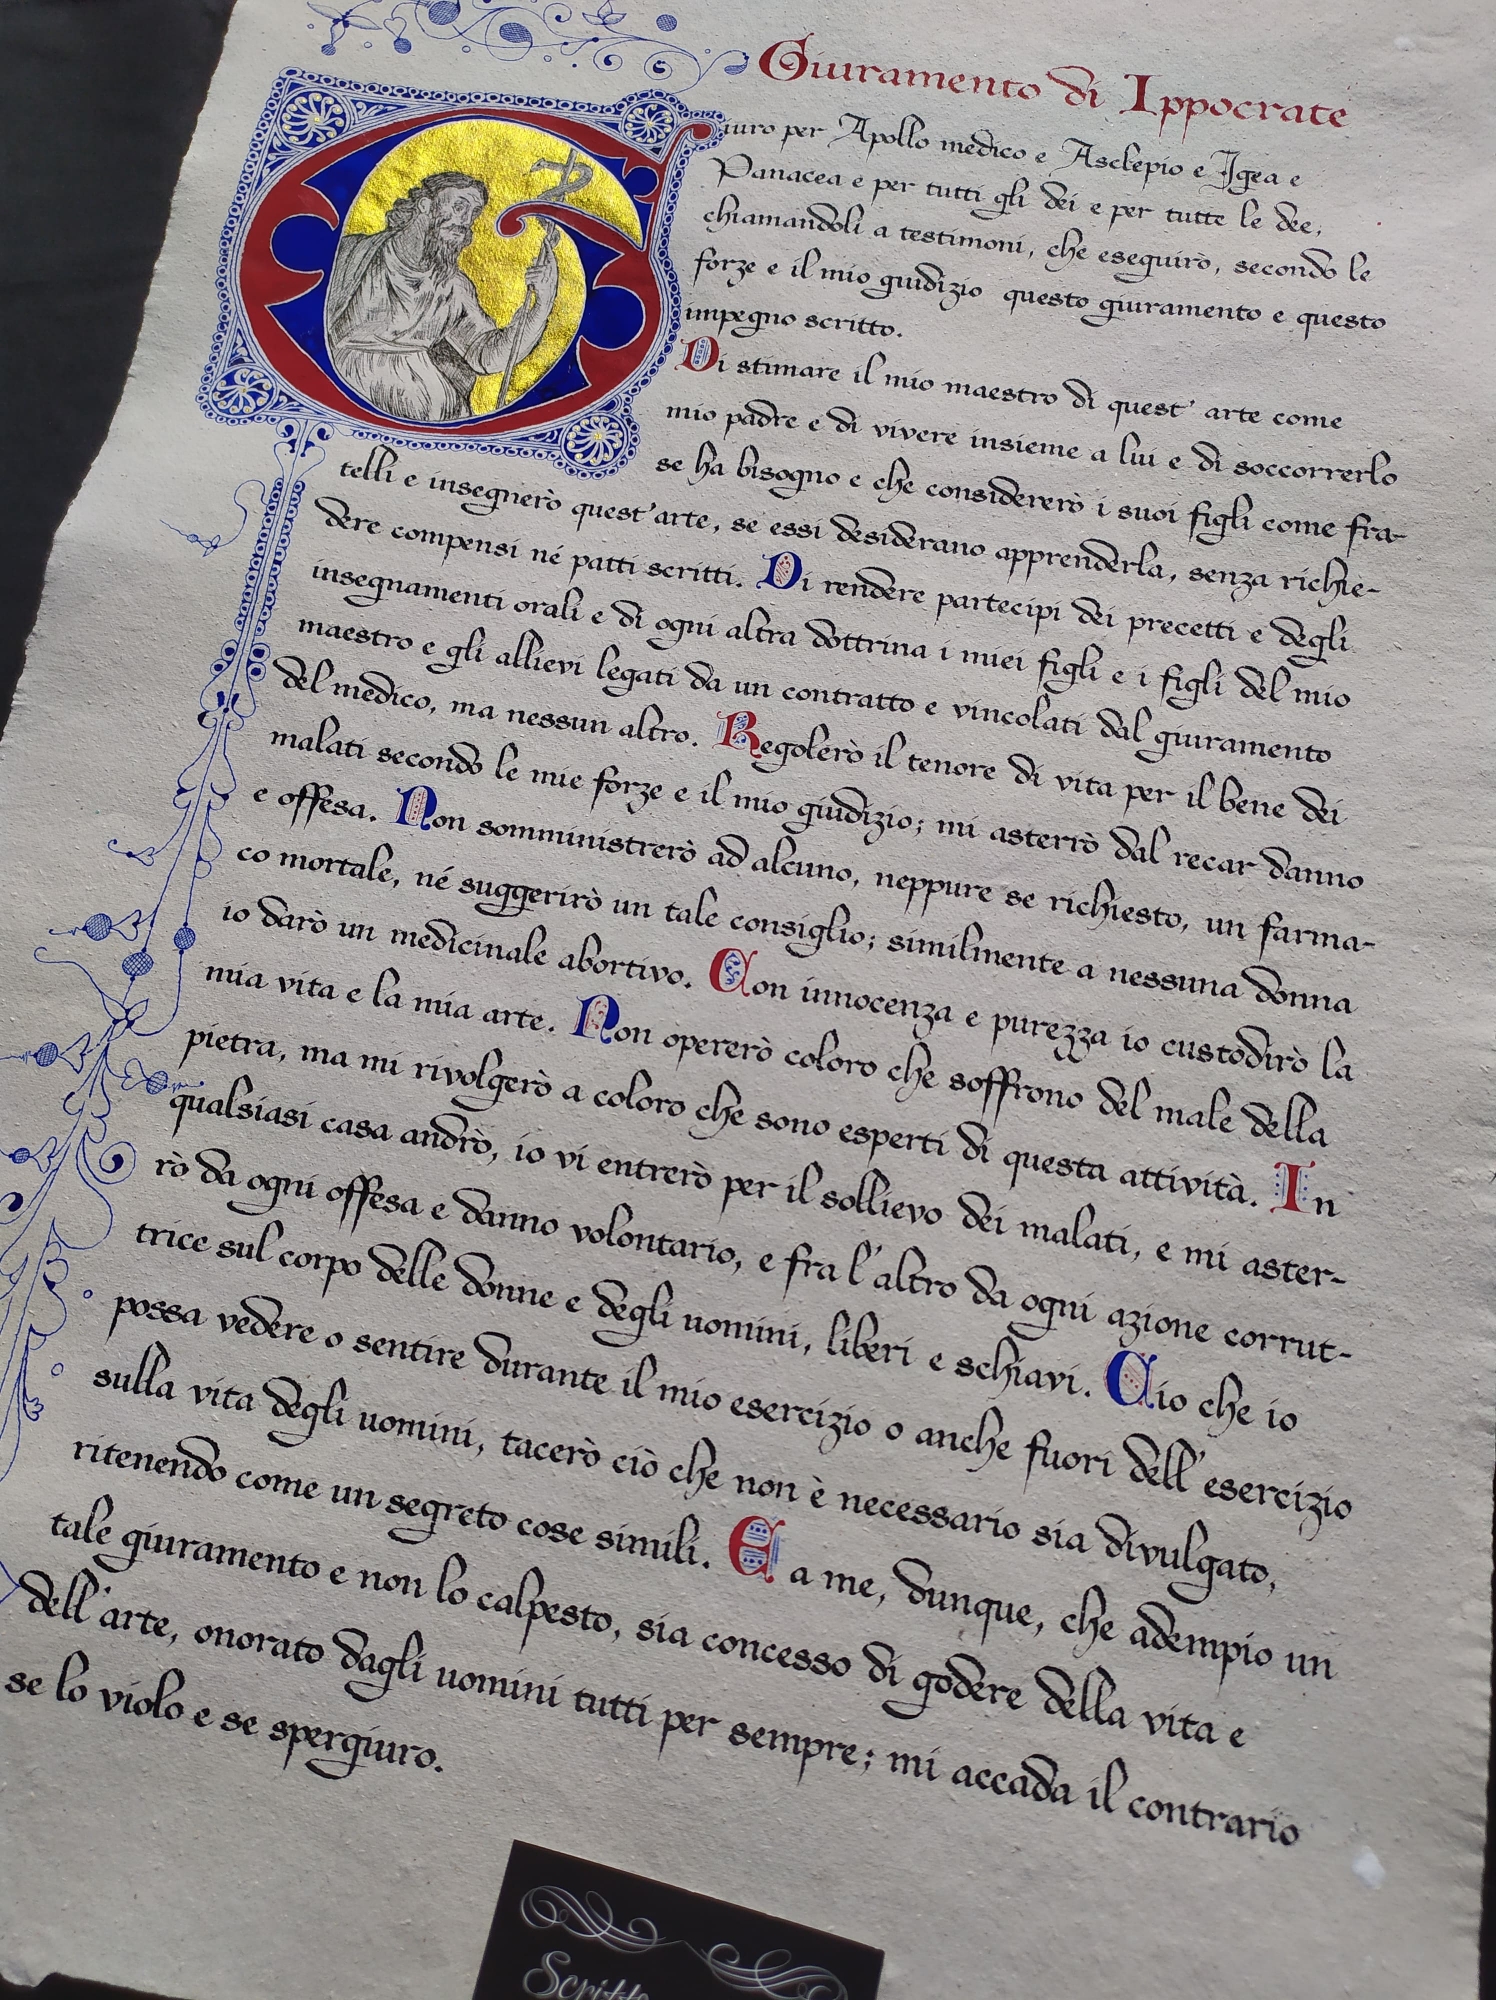 Giuramento di Ippocrate
Giuro per Apollo medico e Asclepio e Igea e
Panacea e per tutti gli dei e per tutte le dee,
chiamandoli a testimoni, che eseguirò, secondo le
forze e il mio giudizio questo giuramento e questo
impegno scritto.
Di stimare il mio maestro di quest' arte come
mio padre e di vivere insieme a lui e di soccorrerlo
se ha bisogno e che considererò i suoi figli come fra-
telli e insegnerò quest'arte, se essi desiderano apprenderla, senza richie-
dere compensi né patti scritti. Di rendere partecipi dei precetti e degli
insegnamenti orali e di ogni altra dottrina i miei figli e i figli del mio
maestro e gli allievi legati da un contratto e vincolati dal giuramento
del medico, ma nessun altro. Regolerò il tenore di vita per il bene dei
malati secondo le mie forze e il mio giudizio; mi asterrò dal recar danno
e offesa. Non somministrerò ad alcuno, neppure se richiesto, un farma-
co mortale, né suggerirò un tale consiglio; similmente a nessuna donna
io darò un medicinale abortivo. Con innocenza e purezza io custodirò la
mia vita e la mia arte. Non opererò coloro che soffrono del male della
pietra, ma mi rivolgerò a coloro che sono esperti di questa attività. In
qualsiasi casa andrò, io vi entrerò per il sollievo dei malati, e mi aster-
rò da ogni offesa e danno volontario, e fra l'altro da ogni azione corrut-
trice sul corpo delle donne e degli uomini, liberi e schiavi. Cio che io
possa vedere o sentire durante il mio esercizio o anche fuori dell'esercizio
sulla vita degli uomini, tacerò ciò che non è necessario sia divulgato,
ritenendo come un segreto cose simili. E a me, dunque, che adempio un
tale giuramento e non lo calpesto, sia concesso di godere della vita e
dell'arte, onorato dagli uomini tutti per sempre; mi accada il contrario
se lo violo e se spergiuro.